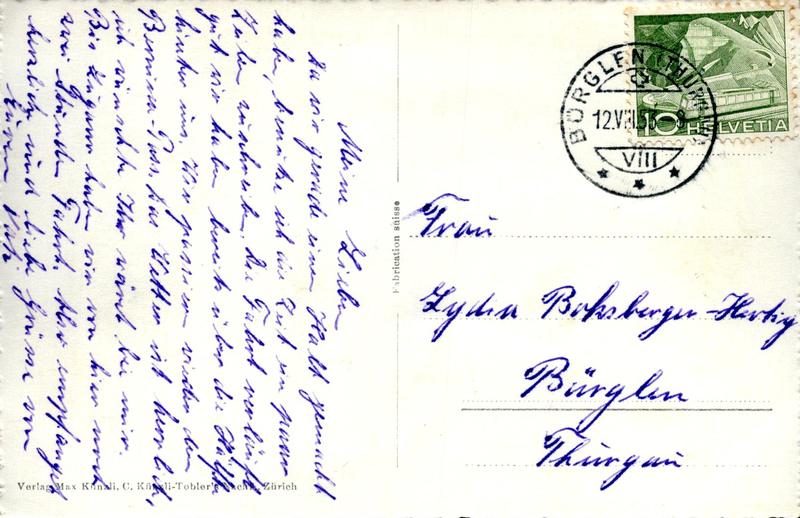 Meine Lieben
Da wir gerade einen Halt gemacht
haben, benütze ich die Zeit ein paar
Zeilen zu schreiben. Die Fahrt verläuft
gut wir haben bereits über die Hälfte
hinter uns. Wir passieren wieder den
Bernina Pass. Das Wetter ist herrlich,
ich wünschte Ihr wäret bei mir.
Bis Lugano haben wir von hier noch
zwei Stunden Fahrt. Also empfanget
herzlich und liebe Grüsse von
Eurem
Verlag Max Künzli, C. Künzli-Tobler's Nachf., Zürich
Fabrication suisse
BÜRGLEN (THURGAU)
12.VIII.53 8
VIII
10 HELVETIA
Frau
Lydia Boksberger-Hertig
Bürglen
Thurgau